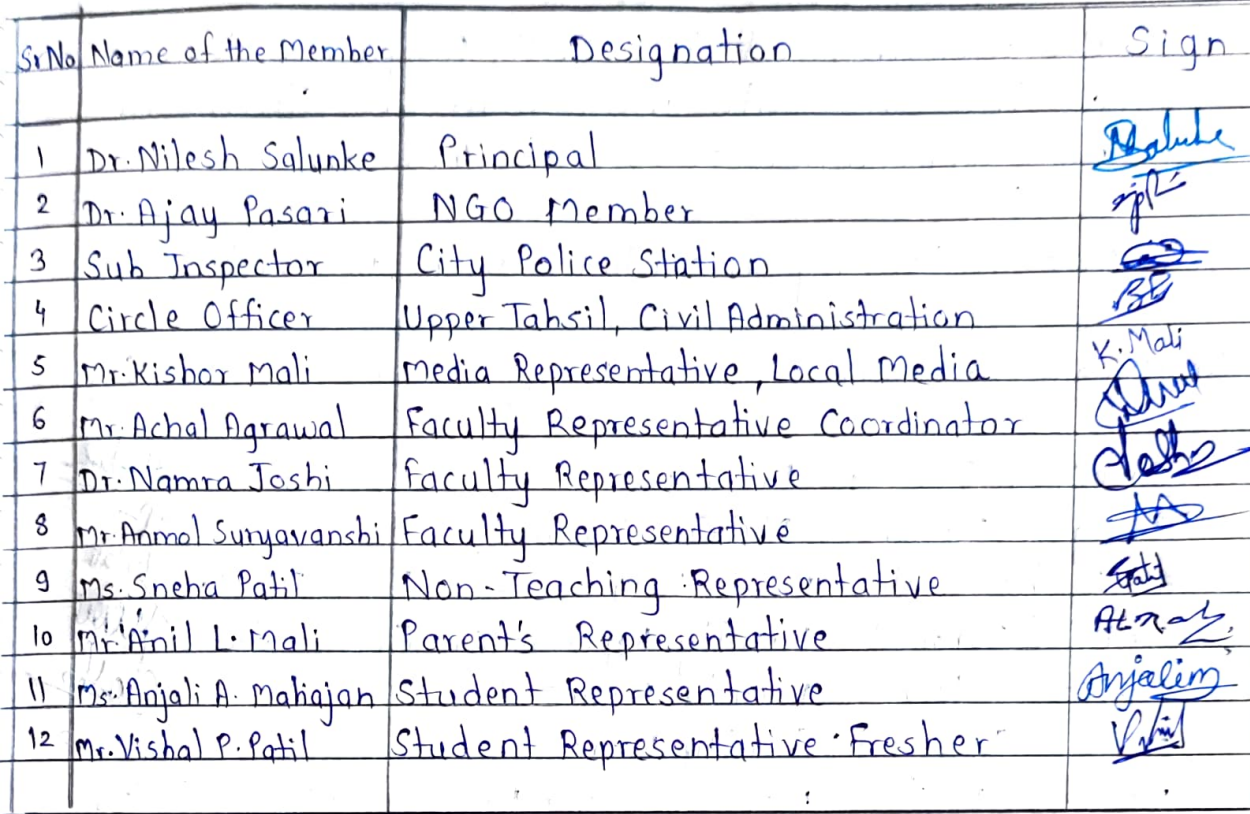 Sr No Name of the Member Designation Sign
1 Dr. Nilesh Salunke Principal
2 Dr. Ajay Pasari NGO Member
3 Sub Inspector City Police Station
4 Circle Officer Upper Tahsil, Civil Administration
5 Mr. Kishor Mali Media Representative, Local Media K. Mali
6 Mr. Achal Agrawal Faculty Representative Coordinator
7 Dr. Namra Joshi Faculty Representative
8 Mr. Anmol Suryavanshi Faculty Representative
9 Ms. Sneha Patil Non-Teaching Representative
10 Mr. Anil L. Mali Parent's Representative
11 Ms. Anjali A. Mahajan Student Representative Anjalim
12 Mr. Vishal P. Patil Student Representative Fresher